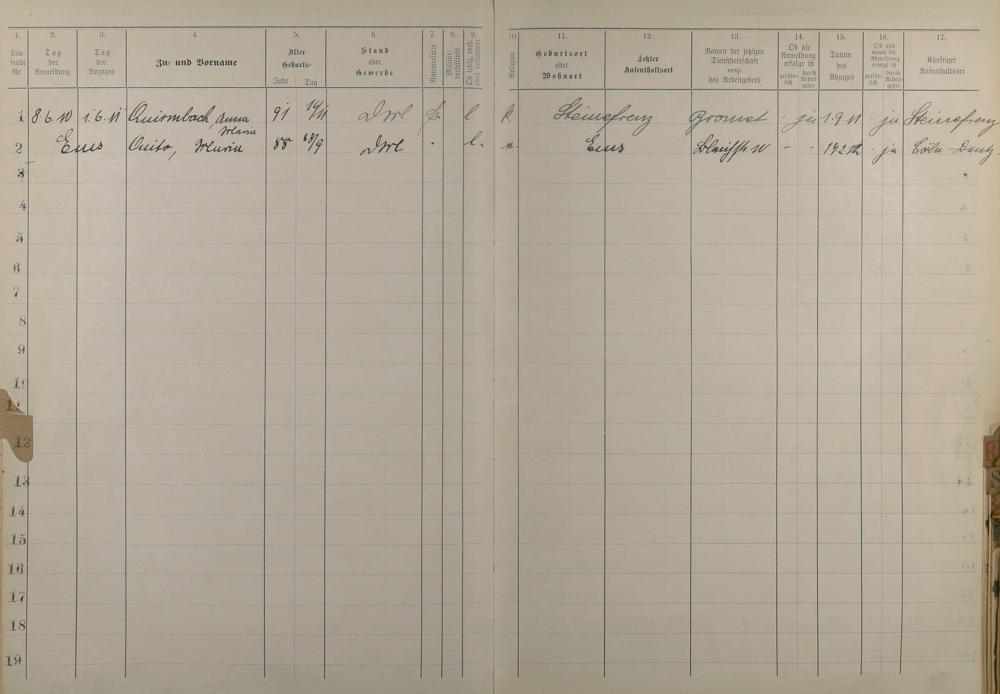 1. 2. 3. 4 5. 6. 7. 8. 9. 10. 11. 12. 13. 14. 15. 16. 17.
Lau-
fende
Nr.
Tag
der
Anmeldung
Tag
des
Anzuges
Zu- und Vorname
Alter
Geburts-
Jahr Tag
Stand
oder
Gewerbe
Nationalität
Militär-
verhältnis
Ob ledig, verh.
oder verwitwet
Religion
Geburtsort
oder
Wohnort
Letzter
Aufenthaltsort
Namen der jetzigen
Dienstherrschaft
resp.
des Arbeitgebers
Ob die
Anmeldung
erfolgt ist
persön-
lich
durch
Arbeit
geber
Datum
des
Abzuges
Ob und
wann die
Abmeldung
erfolgt ist
persön-
lich
durch
Arbeit
geber
Künftiger
Aufenthaltsort
1 8.6.11 1.6.11 Quirmbach, Anna 91 l k Steinefrenz ja 1.9.11 ja Steinefrenz
Maria
2 Ems Quito, Maria 88 l. Ems - - ja Cöln-Deutz
3
4
5
6
7
8
9
10
11
12
13
14
15
16
17
18
19